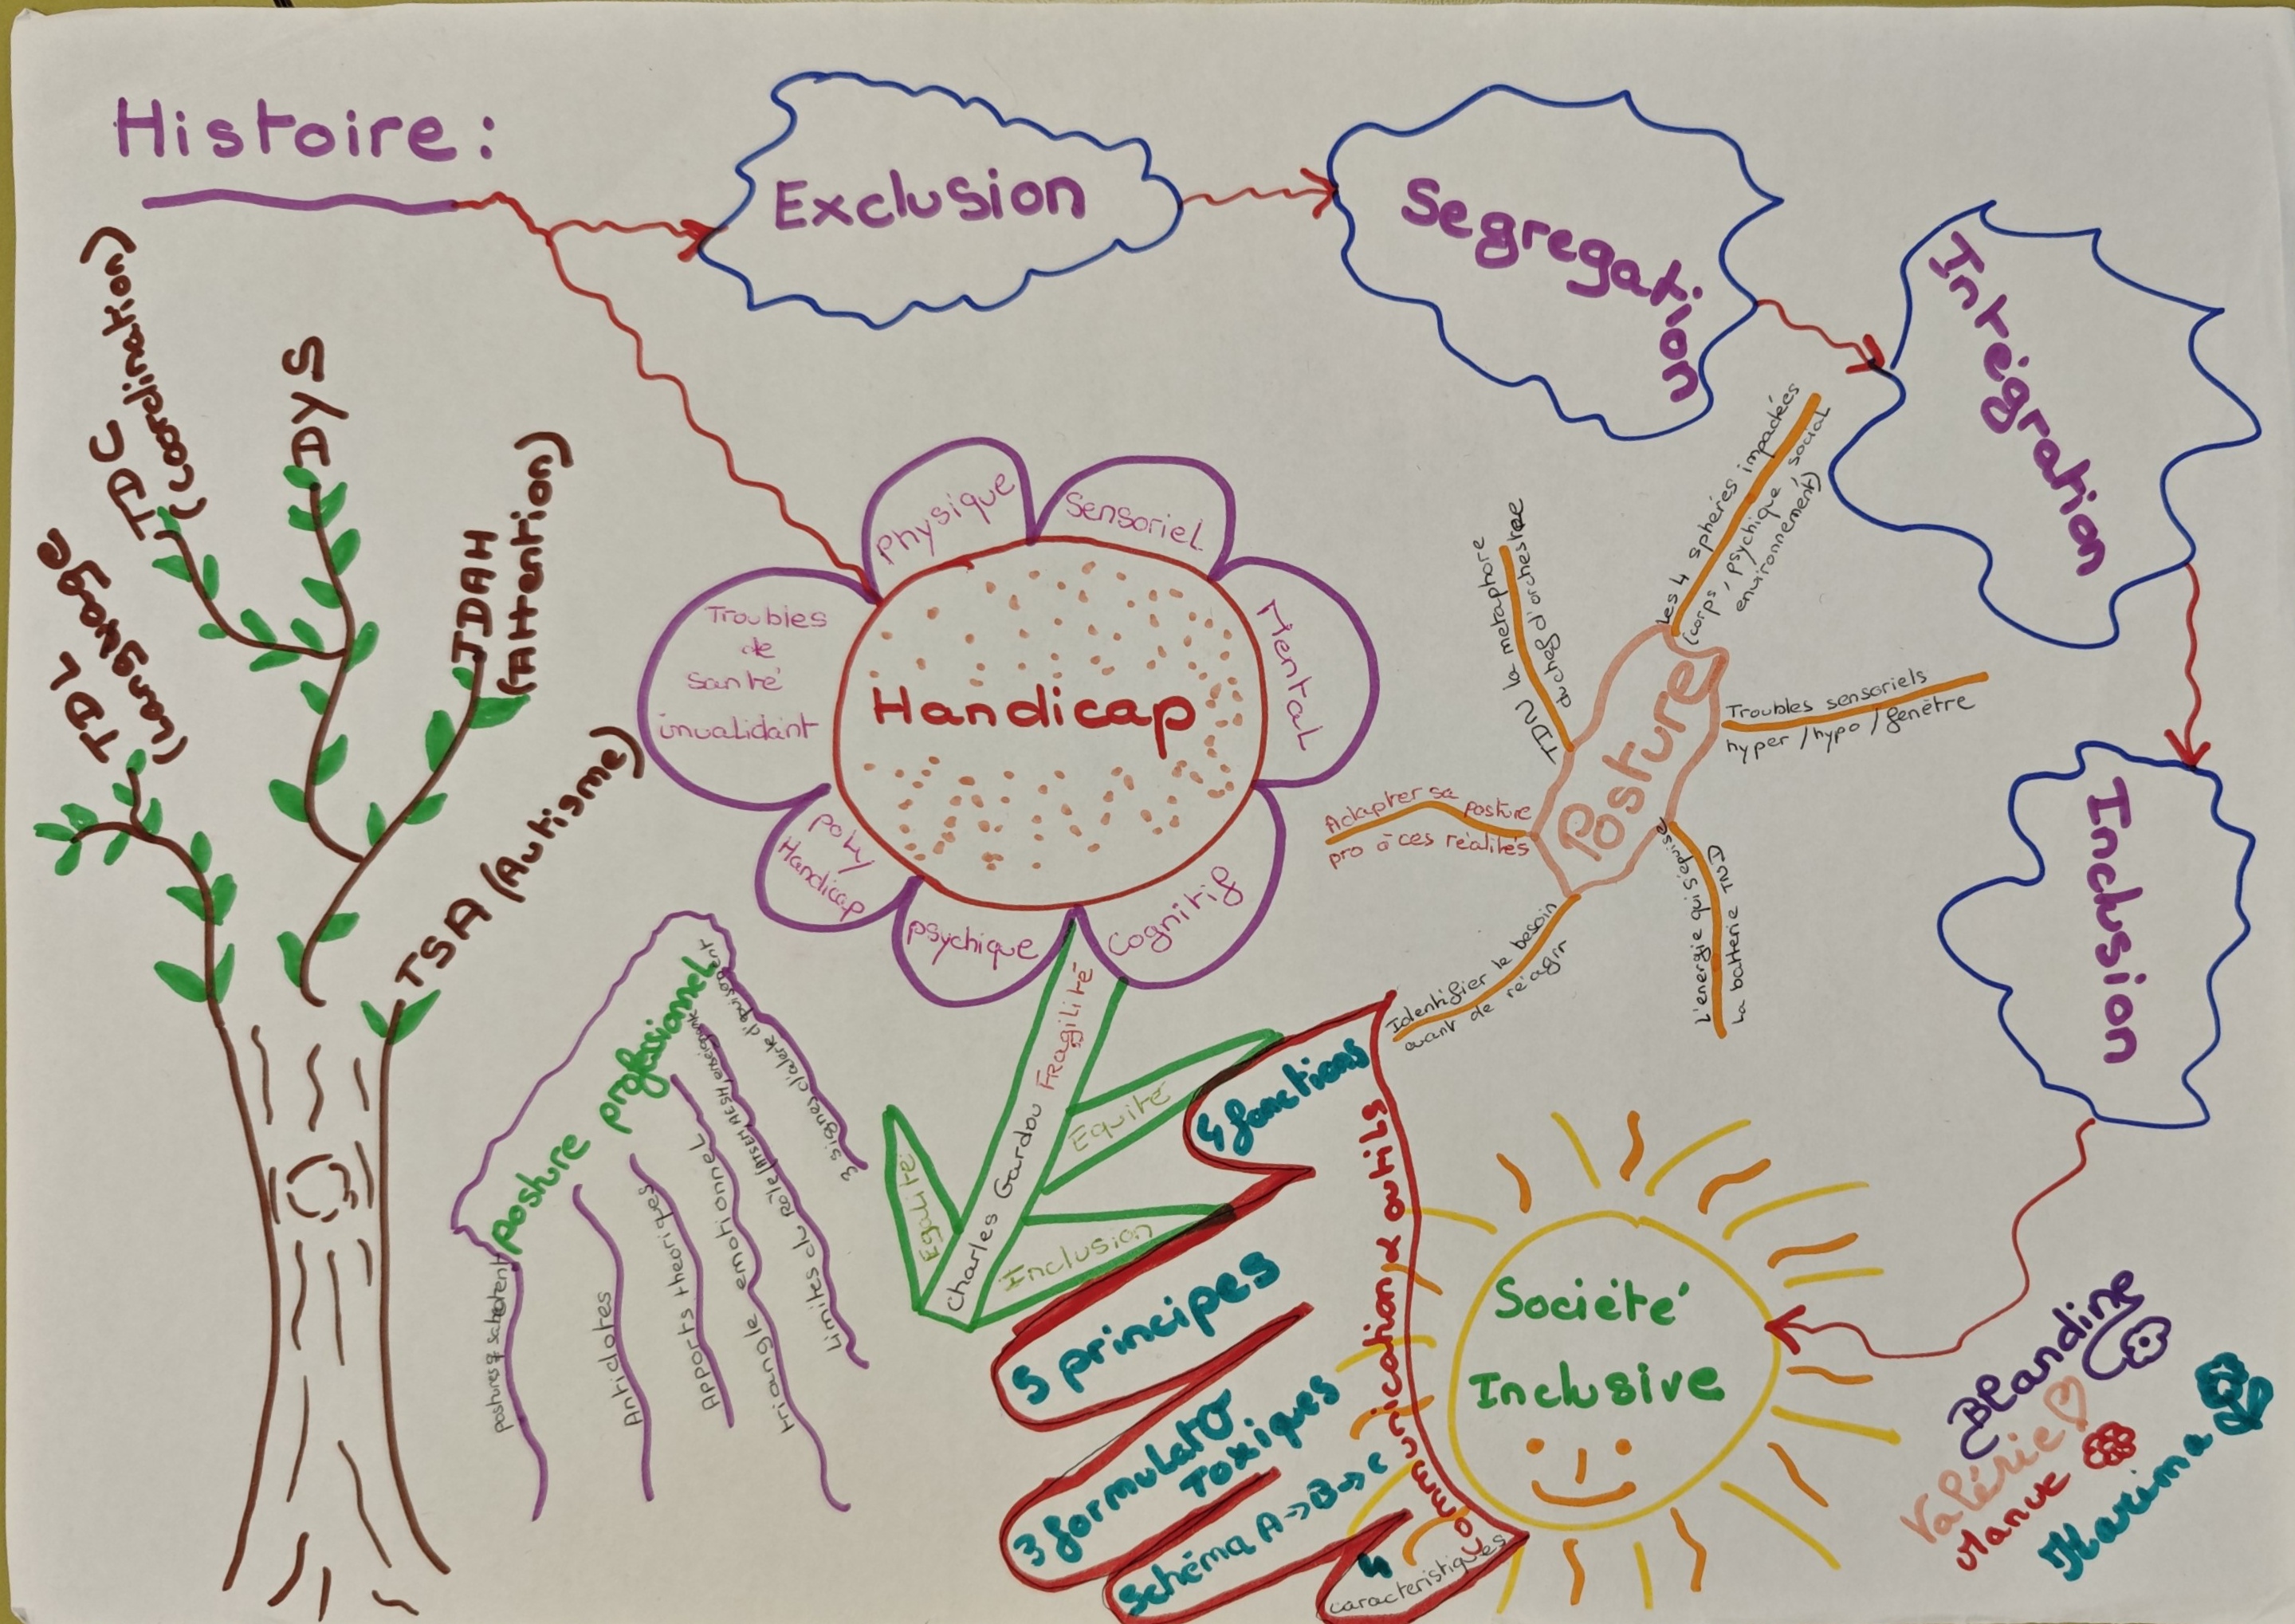 Histoire :
Exclusion
Segregation
Intégration
Inclusion
Société
Inclusive
TDL
(Language
TDC
(Coordination)
DYS
TDAH
(Attention)
TSA (Autisme)
Handicap
Physique
Sensoriel
Mental
Cognitif
psychique
poly
Handicap
Troubles
de
santé
invalidant
Charles Gardou Fragilité
Egalité
Equité
Inclusion
Posture
TDN la metaphore
du chef d'orchestre
Les 4 sphéres impactées
(corps, psychique social
environnement)
Troubles sensoriels
hyper / hypo / fenêtre
L'énergie qui s'épuise
La batterie TND
Identifier le besoin
avant de réagir
Adapter sa posture
pro à ces réalités
posture professionnel
postures
Antidotes
Apports théoriques
triangle emotionnel
Limites du Rôle (ATSEM AESH enseignant
3 signes d'alerte d'épuisement
Communication & outils
4 fonctions
5 principes
3 formulato
Toxiques
Schéma A → B → C
4
caracteristiques
Blandine
Valérie
Manue
Karima